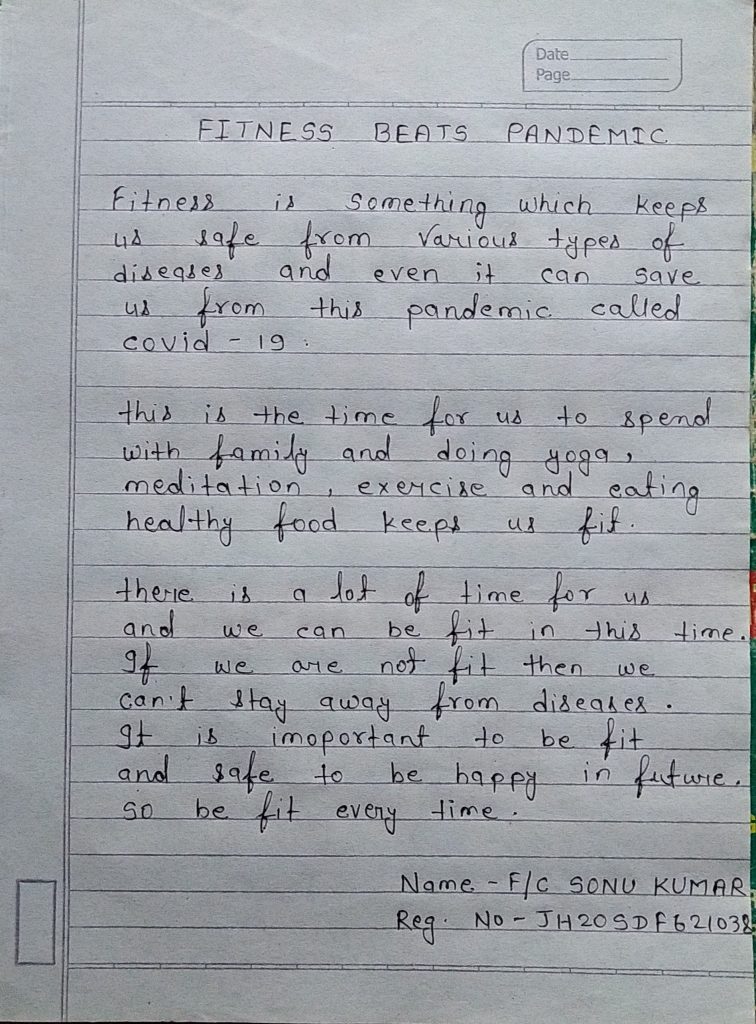 Date
Page
FITNESS BEATS PANDEMIC
Fitness is something which keeps
us safe from various types of
diseases and even it can save
us from this pandemic called
covid - 19 .
this is the time for us to spend
with family and doing yoga ,
meditation , exercise and eating
healthy food keeps us fit .
there is a lot of time for us
and we can be fit in this time .
If we are not fit then we
can't stay away from diseases .
It is imoportant to be fit
and safe to be happy in future .
so be fit every time .
Name - F/C SONU KUMAR
Reg. No - JH20SDF621038